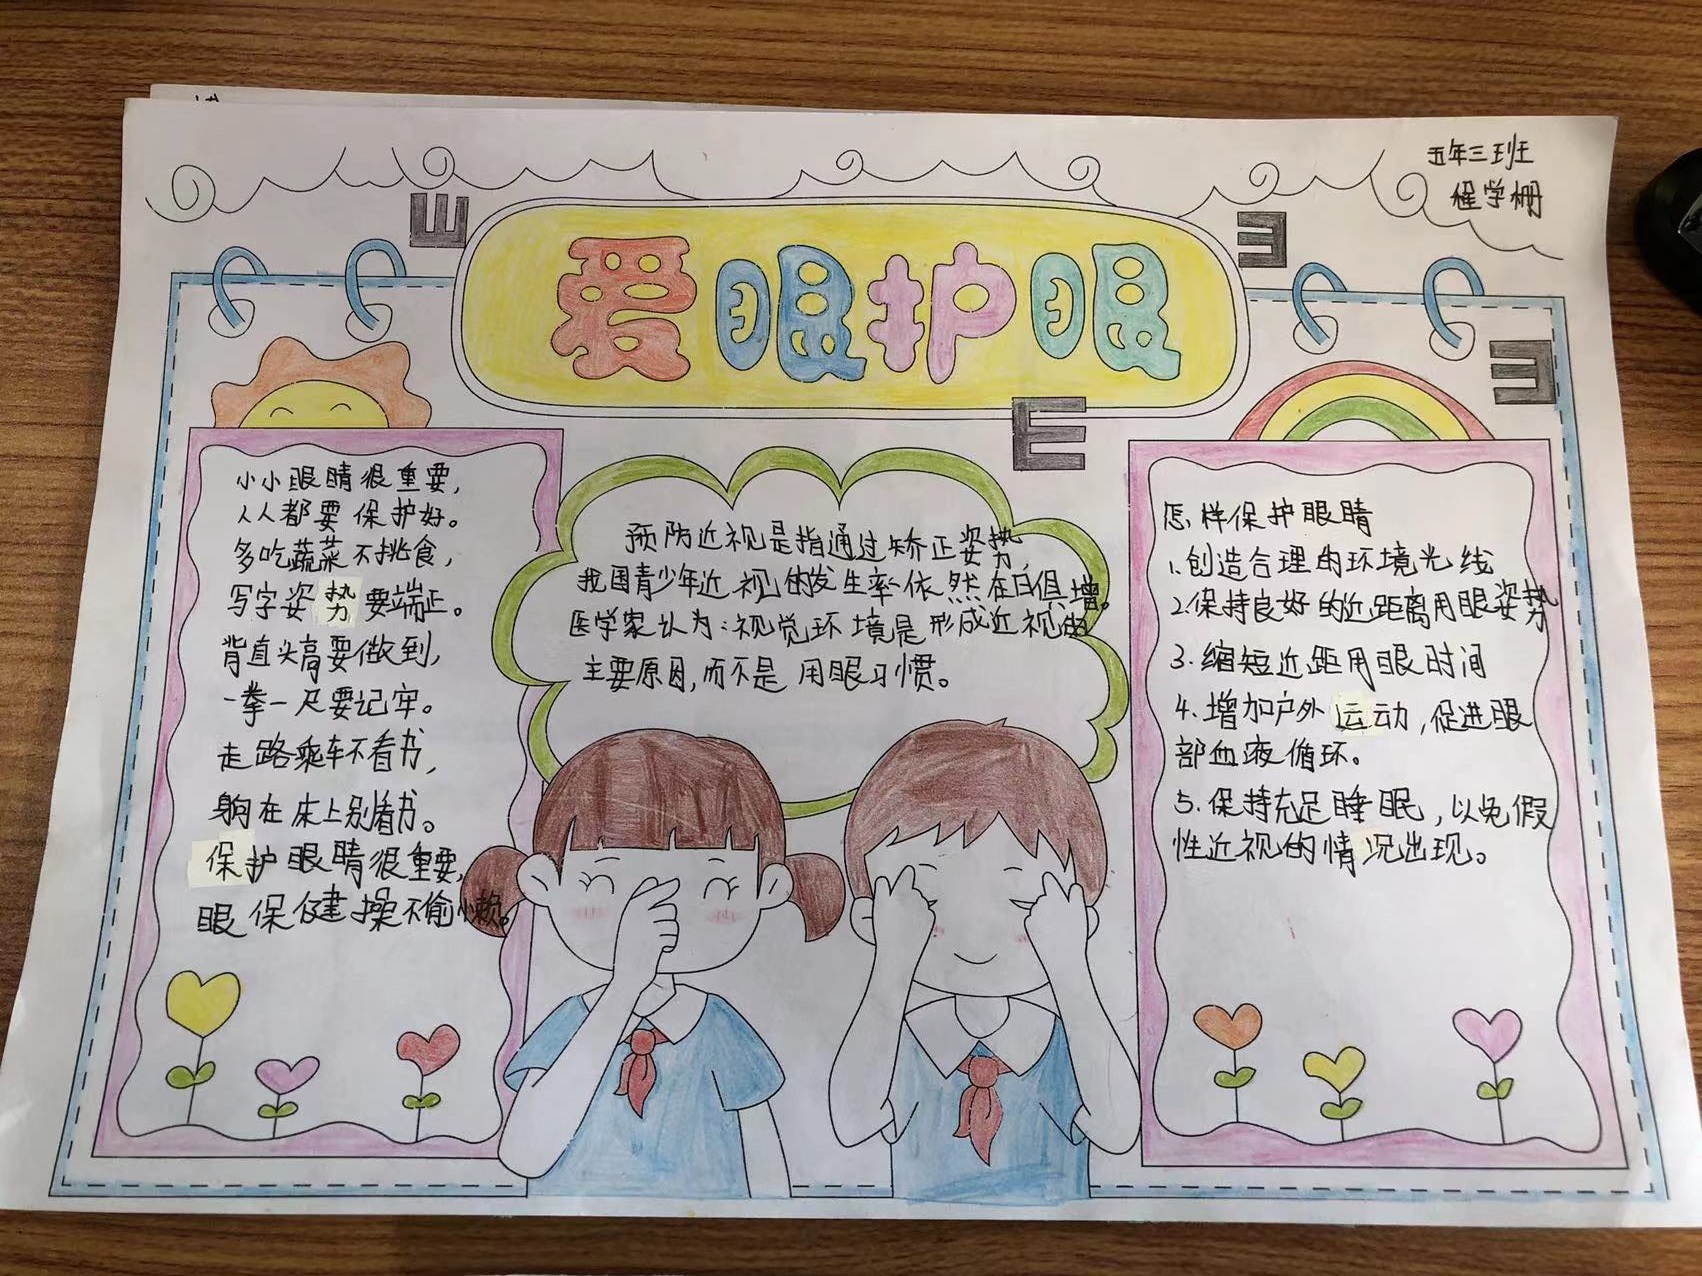 五年三班
程学栅
爱眼护眼
小小眼睛很重要,
人人都要保护好。
多吃蔬菜不挑食,
写字姿势要端正。
背直头高要做到,
一拳一尺要记牢。
走路乘车不看书,
躺在床上别看书。
保护眼睛很重要,
眼保健操不偷懒。
预防近视是指通过矫正姿势,
我国青少年近视的发生率依然在日俱增。
医学家认为:视觉环境是形成近视的
主要原因,而不是用眼习惯。
怎样保护眼睛
1.创造合理的环境光线
2.保持良好的近距离用眼姿势
3.缩短近距用眼时间
4.增加户外运动,促进眼
部血液循环。
5.保持充足睡眠,以免假
性近视的情况出现。